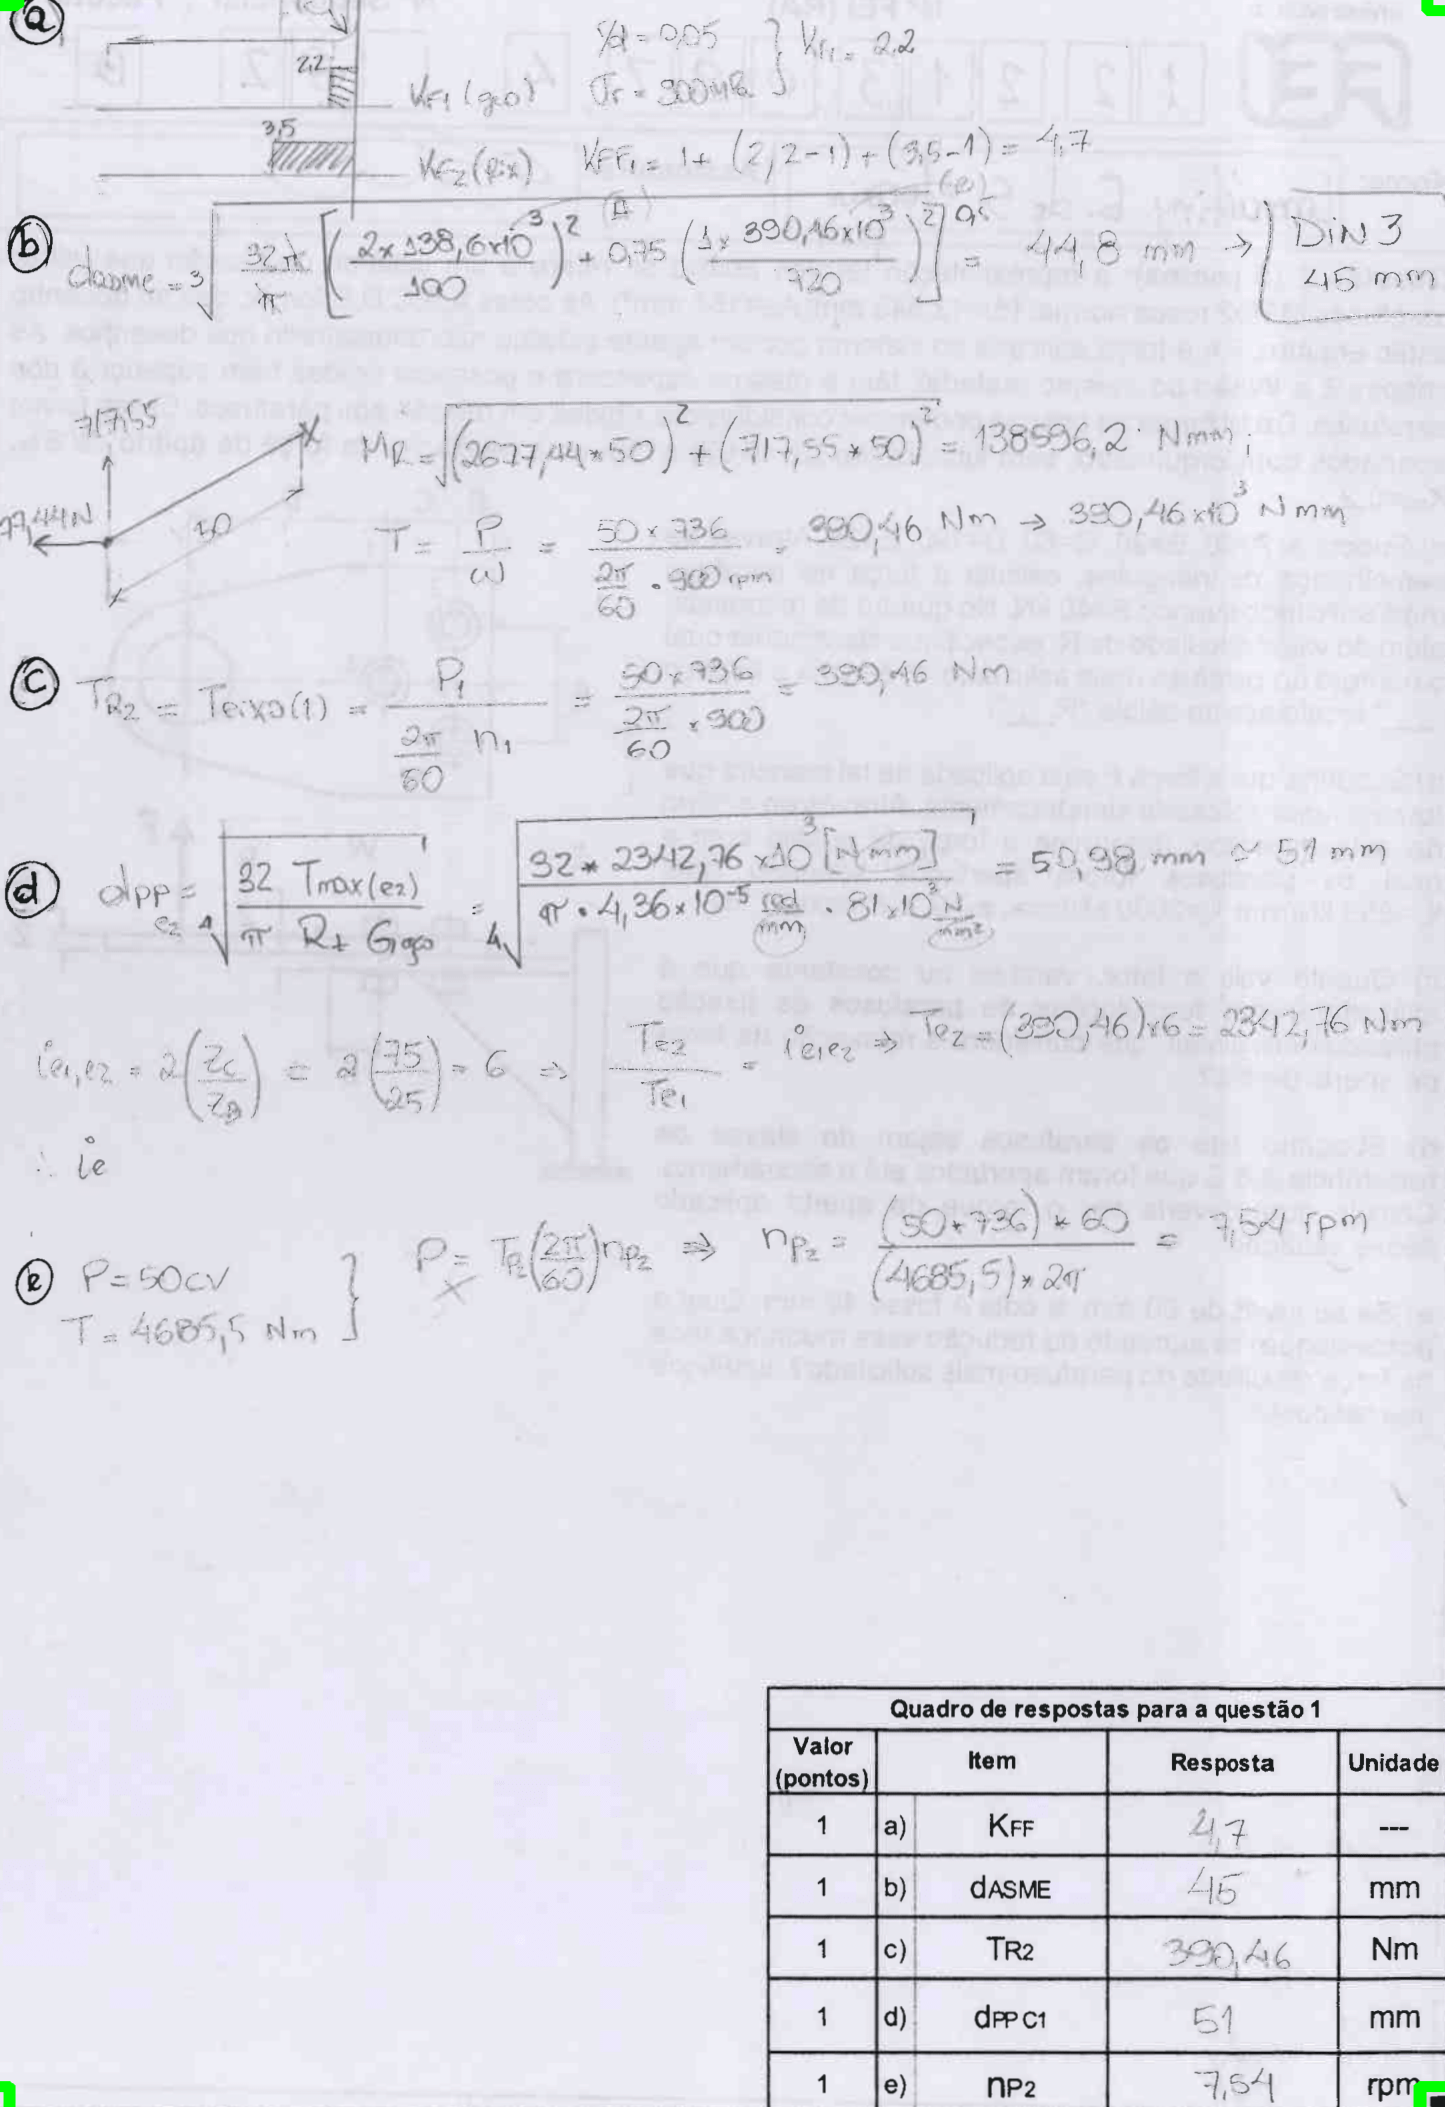 a
r/d = 0,05 } KF1 = 2,2
2,2
KF1 (geo) σr = 900 MPa
3,5
KF2 (fix) KFF1 = 1 + (2,2-1) + (3,5-1) = 4,7
b
dasme = ³√ 32 x / π [ ( 2 x 138,6x10³ / 100 )² + 0,75 ( 1 x 390,46x10³ / 720 )² ]^0,5 = 44,8 mm → DIN 3 45 mm
717,55
MR = √(2677,44*50)² + (717,55*50)² = 138596,2 Nmm;
77,44N
T = P / ω = 50 x 736 / 2π/60 . 900 rpm = 390,46 Nm → 390,46x10³ Nmm
c
TR2 = Teixo(1) = P1 / 2π/60 n1 = 50 x 736 / 2π/60 x 900 = 390,46 Nm
d
dpp e2 = ⁴√ 32 Tmax(e2) / π Rt Gaço = ⁴√ 32 * 2342,76 x10³ [Nmm] / π . 4,36x10⁻⁵ rad/mm . 81x10³ N/mm² = 50,98 mm ≃ 51 mm
ie1,e2 = 2(Zc/ZB) = 2(75/25) = 6 ⇒ Te2/Te1 = ie1e2 ⇒ Te2 = (390,46)x6 = 2342,76 Nm
∴ ie
e
P = 50 CV } P = TP2 (2π/60) nP2 ⇒ nP2 = (50*736) * 60 / (4685,5) * 2π = 7,54 rpm
T = 4685,5 Nm
Quadro de respostas para a questão 1
Valor (pontos) Item Resposta Unidade
1 a) KFF 4,7 ---
1 b) dASME 45 mm
1 c) TR2 390,46 Nm
1 d) dPP C1 51 mm
1 e) nP2 7,54 rpm